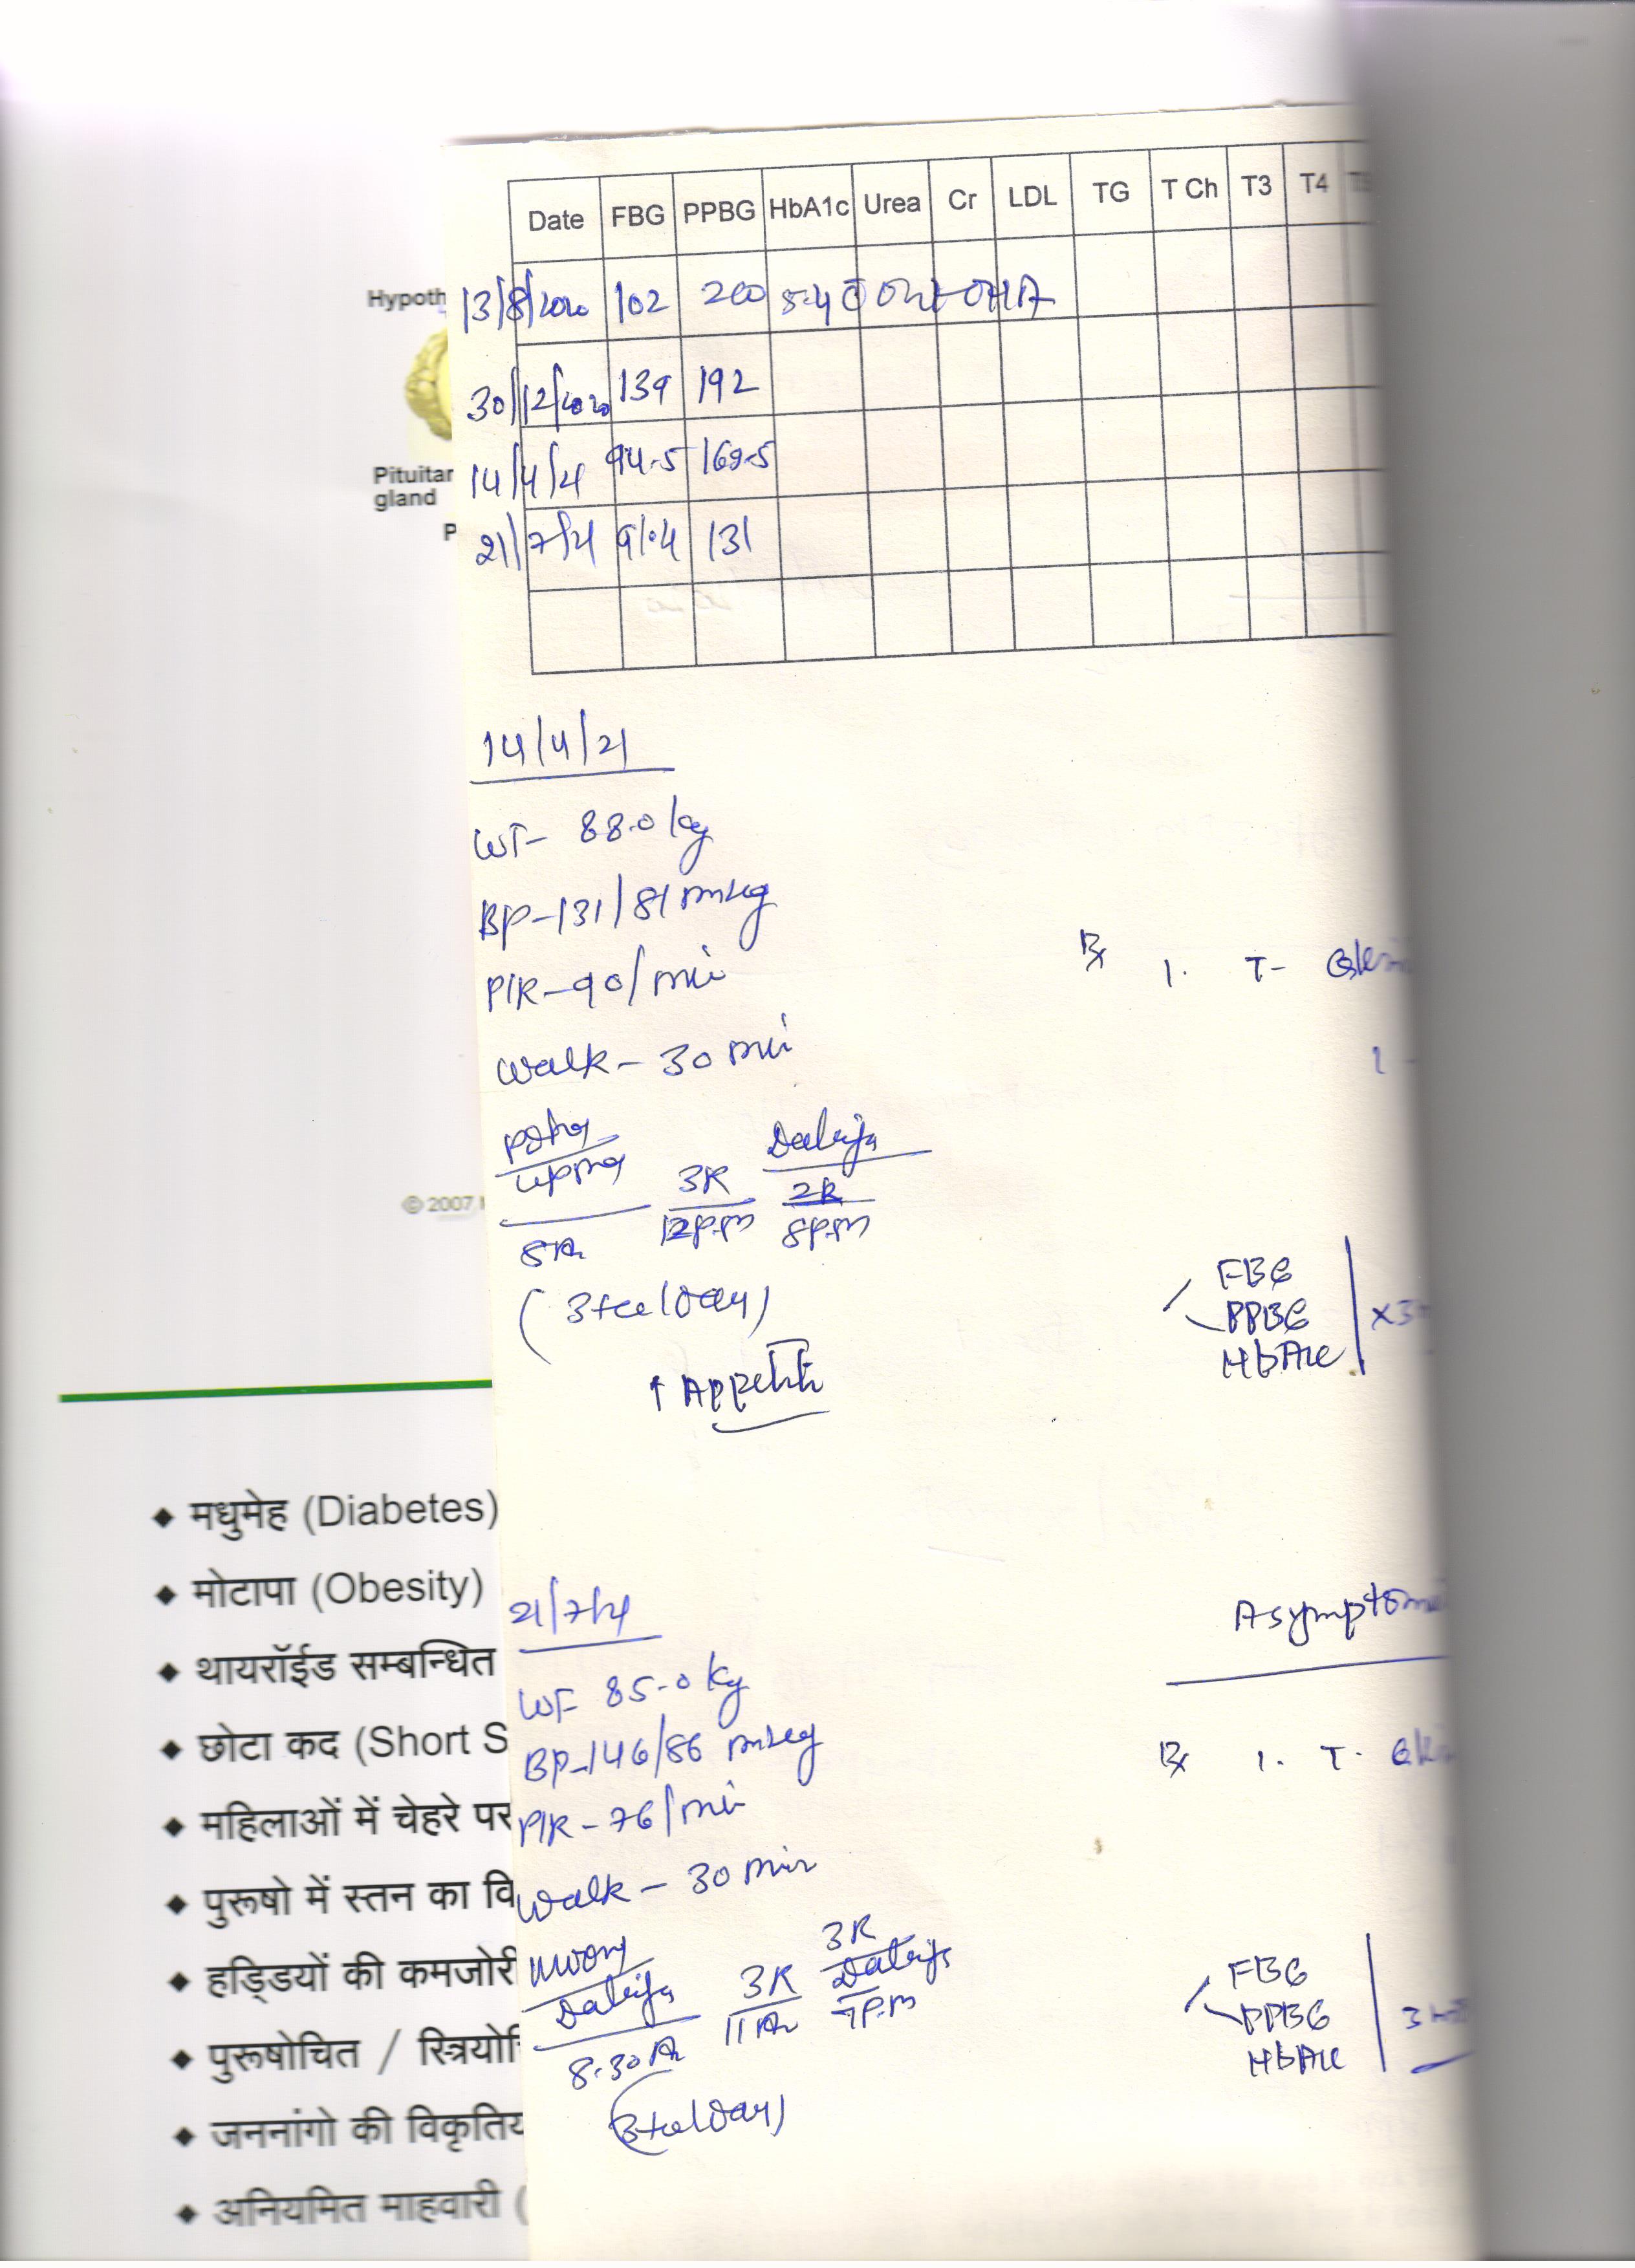 Date FBG PPBG HbA1c Urea Cr LDL TG T Ch T3 T4
13/8/2020 102 200 8.4 OHA
30/12/2020 139 192
14/4/21 94.5 169.5
21/7/21 91.4 131
Hypoth
Pituitar
gland
P
14/4/21
WT- 88.0 kg
BP-131/81 mmHg
P/R-90/min
Rx 1. T-
Walk - 30 min
Poha
3R
12pm
Daliya
2R
8pm
8A
© 2007
(3 tea/day)
FBG
PPBG
HbA1c
x3
↑ Appetite
◆ मधुमेह (Diabetes)
◆ मोटापा (Obesity)
◆ थायरॉईड सम्बन्धित
◆ छोटा कद (Short S
◆ महिलाओं में चेहरे पर
◆ पुरूषो में स्तन का वि
◆ हड्डियों की कमजोरी
◆ पुरूषोचित / स्त्रियोचि
◆ जननांगो की विकृतिय
◆ अनियमित माहवारी (
21/7/21
Asymptom
WT- 85.0 kg
BP-146/86 mmHg
Rx 1. T.
P/R-76/min
Walk - 30 min
Daliya
8.30A
3R
11A
3R
Daliya
7pm
FBG
PPBG
HbA1c
3
(3 tea/day)